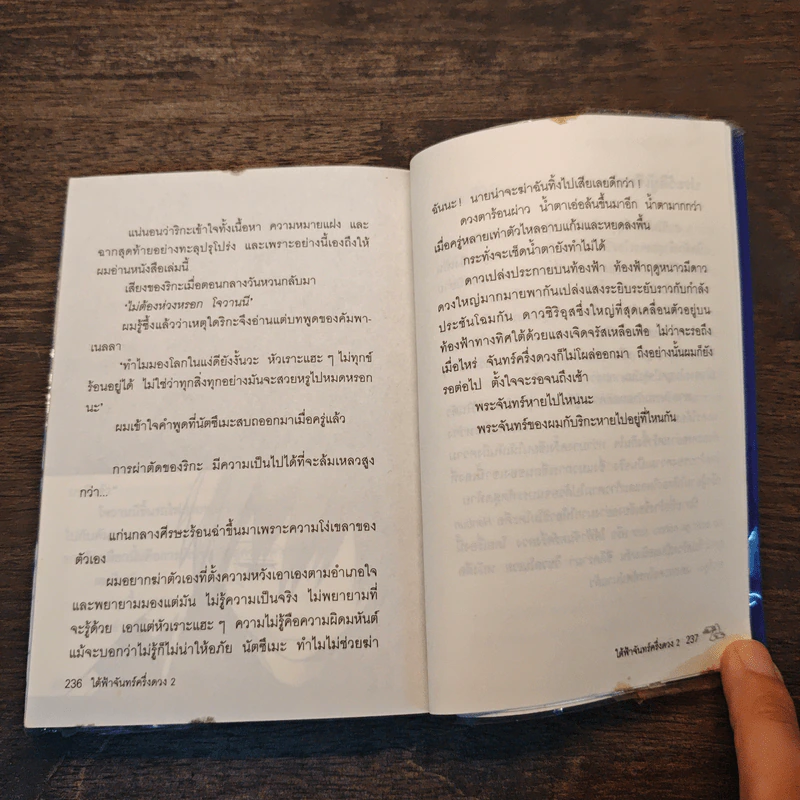 แน่นอนว่าริกะเข้าใจทั้งเนื้อหา ความหมายแฝง และ
ฉากสุดท้ายอย่างทะลุปรุโปร่ง และเพราะอย่างนี้เองถึงให้
ผมอ่านหนังสือเล่มนี้
เสียงของริกะเมื่อตอนกลางวันหวนกลับมา
"ไม่ต้องห่วงหรอก โจวานนี"
ผมรู้ซึ้งแล้วว่าเหตุใดริกะจึงอ่านแต่บทพูดของคัมพา-
เนลลา
"ทำไมมองโลกในแง่ดียังงั้นวะ หัวเราะแฮะ ๆ ไม่ทุกข์
ร้อนอยู่ได้ ไม่ใช่ว่าทุกสิ่งทุกอย่างมันจะสวยหรูไปหมดหรอก
นะ"
ผมเข้าใจคำพูดที่นัตซึเมะสบถออกมาเมื่อครู่แล้ว
การผ่าตัดของริกะ มีความเป็นไปได้ที่จะล้มเหลวสูง
กว่า...
แก่นกลางศีรษะร้อนฉ่าขึ้นมาเพราะความโง่เขลาของ
ตัวเอง
ผมอยากฆ่าตัวเองที่ตั้งความหวังเอาเองตามอำเภอใจ
และพยายามมองแต่มัน ไม่รู้ความเป็นจริง ไม่พยายามที่
จะรู้ด้วย เอาแต่หัวเราะแฮะ ๆ ความไม่รู้คือความผิดมหันต์
แม้จะบอกว่าไม่รู้ก็ไม่น่าให้อภัย นัตซึเมะ ทำไมไม่ช่วยฆ่า
236 ใต้ฟ้าจันทร์ครึ่งดวง 2
ฉันนะ! นายน่าจะฆ่าฉันทิ้งไปเสียเลยดีกว่า!
ดวงตาร้อนผ่าว น้ำตาเอ่อล้นขึ้นมาอีก น้ำตามากกว่า
เมื่อครู่หลายเท่าตัวไหลอาบแก้มและหยดลงพื้น
กระทั่งจะเช็ดน้ำตายังทำไม่ได้
ดาวเปล่งประกายบนท้องฟ้า ท้องฟ้าฤดูหนาวมีดาว
ดวงใหญ่มากมายพากันเปล่งแสงระยิบระยับราวกับกำลัง
ประชันโฉมกัน ดาวซิริอุสซึ่งใหญ่ที่สุดเคลื่อนตัวอยู่บน
ท้องฟ้าทางทิศใต้ด้วยแสงเจิดจรัสเหลือเฟือ ไม่ว่าจะรอถึง
เมื่อไหร่ จันทร์ครึ่งดวงก็ไม่โผล่ออกมา ถึงอย่างนั้นผมก็ยัง
รอต่อไป ตั้งใจจะรอจนถึงเช้า
พระจันทร์หายไปไหนนะ
พระจันทร์ของผมกับริกะหายไปอยู่ที่ไหนกัน
ใต้ฟ้าจันทร์ครึ่งดวง 2 237